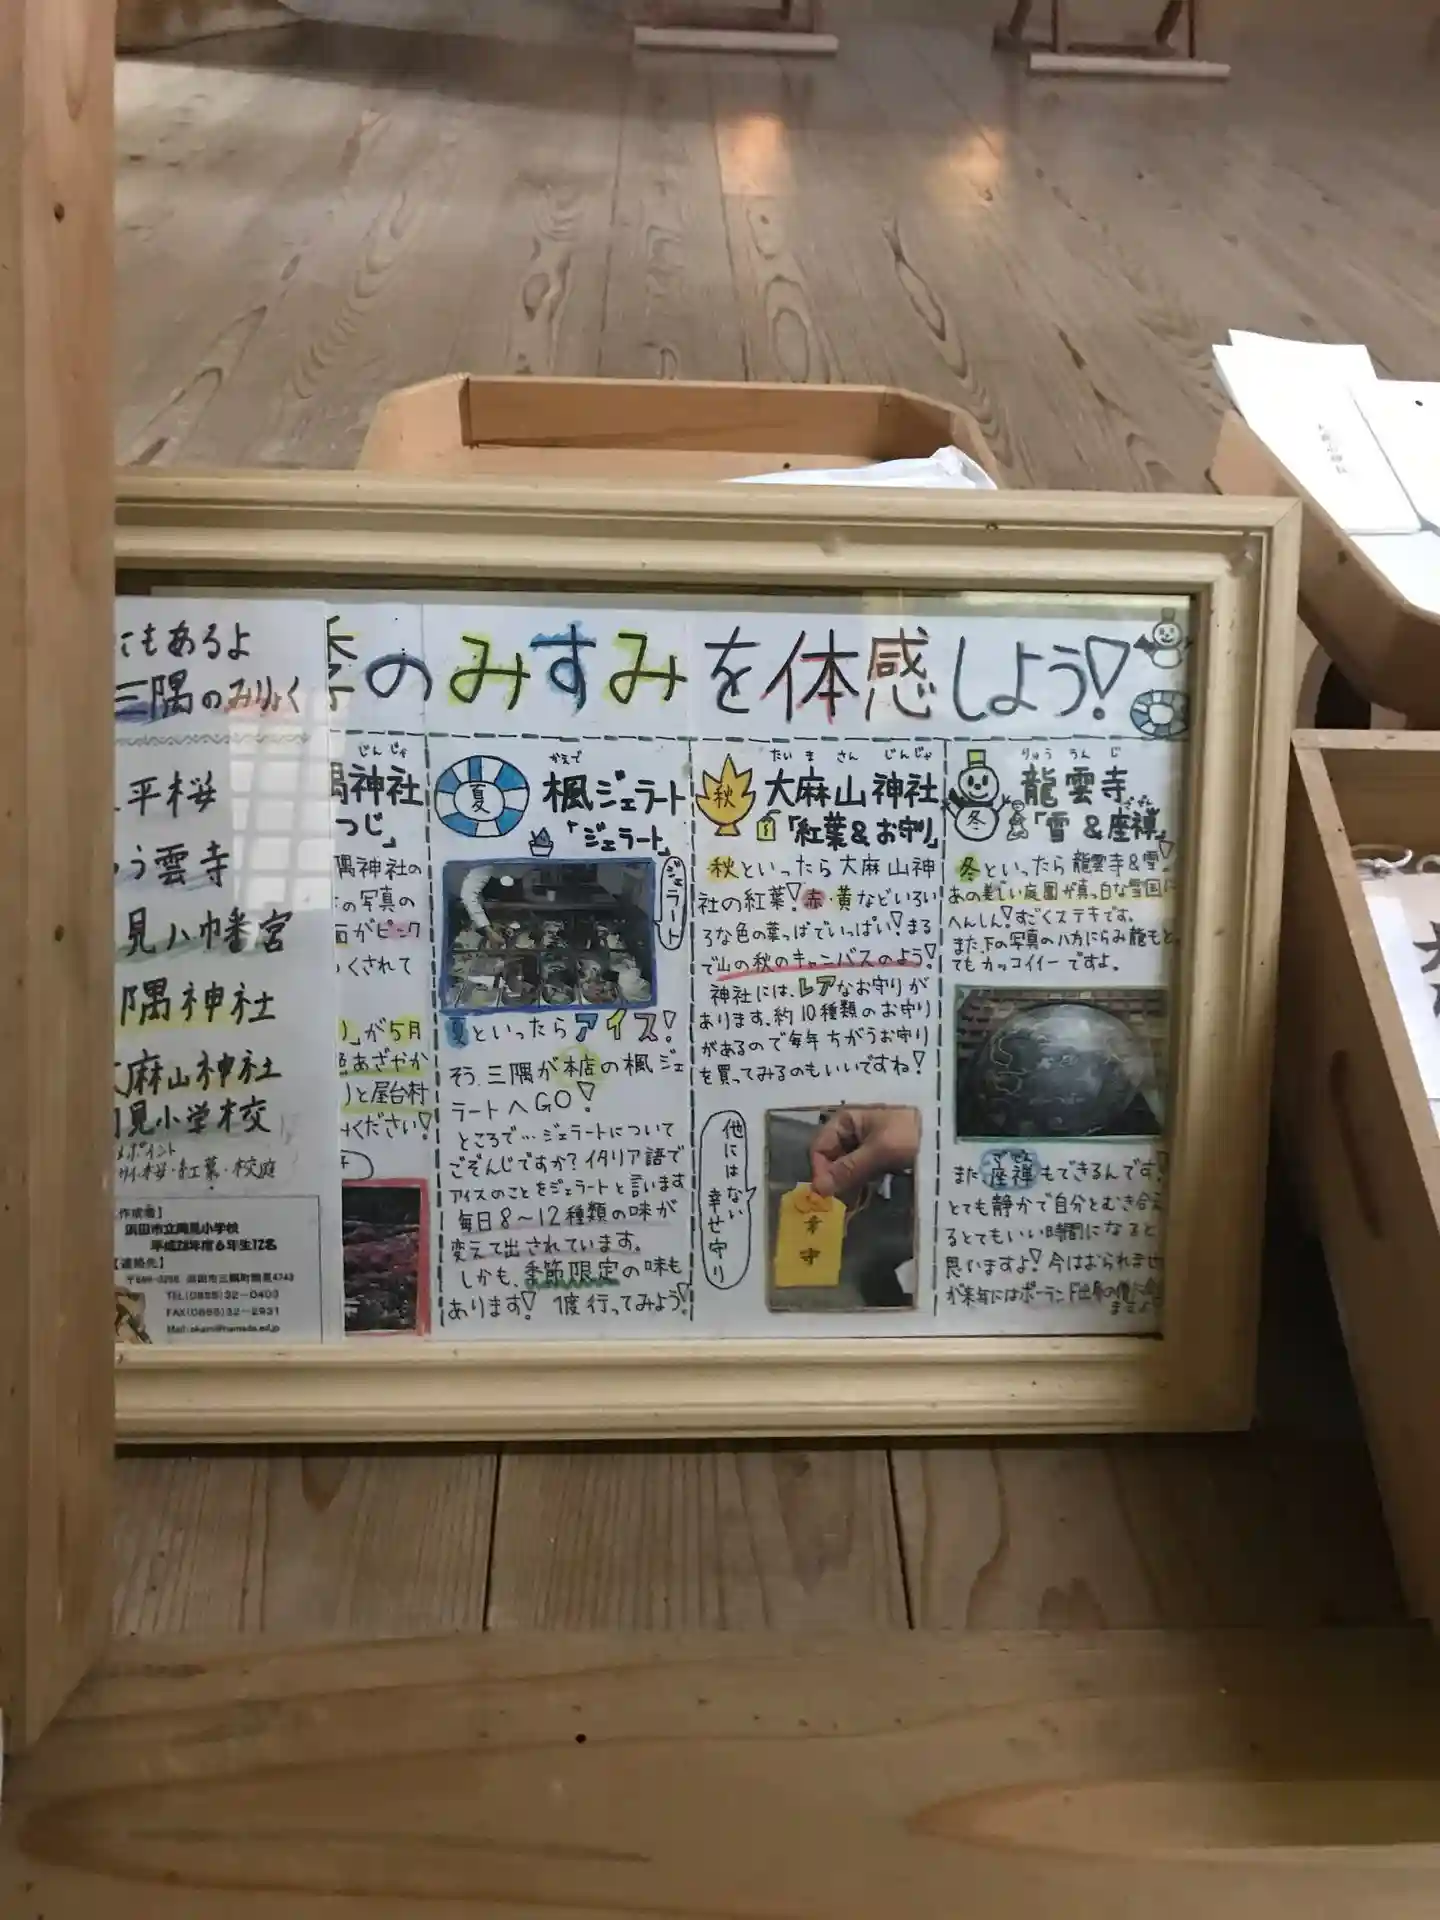 にもあるよ
三隅のみりょく
平桜
う雲寺
見八幡宮
隅神社
大麻山神社
見小学校
桜・紅葉・校庭
【作成者】
浜田市立岡見小学校
平成28年度6年生12名
【連絡先】
浜田市三隅町岡見4743
TEL(0855)32-0403
FAX(0855)32-2931
季のみすみを体感しよう!
じんじゃ
隅神社
つじ」
隅神社の
の写真の
面がピンク
くされて
り」が5月
色あざやか
りと屋台村
ください!
夏
かえで
楓ジェラート
「ジェラート」
ジェラート
夏といったらアイス!
そう、三隅が本店の楓ジェ
ラートへGO!
ところで…ジェラートについて
ごぞんじですか?イタリア語で
アイスのことをジェラートと言います
毎日8〜12種類の味が
変えて出されています。
しかも、季節限定の味も
あります!1度行ってみよう!
秋
たいまさんじんじゃ
大麻山神社
「紅葉&お守り」
秋といったら大麻山神
社の紅葉!赤・黄などいろい
ろな色の葉っぱでいっぱい!まる
で山の秋のキャンバスのよう!
神社には、レアなお守りが
あります。約10種類のお守り
があるので毎年ちがうお守り
を買ってみるのもいいですね!
他にはない
幸せ守り
幸守
冬
りゅううんじ
龍雲寺
ざぜん
「雪&座禅」
冬といったら龍雲寺&雪!
あの美しい庭園が真っ白な雪国に
へんしん!すごくステキです。
また、下の写真の八方にらみ龍もと
てもカッコイイーですよ。
ざぜん
また、座禅もできるんです!
とても静かで自分とむき合え
るとてもいい時間になると
思いますよ!今はおられませ
が来年にはポーランド出身の僧